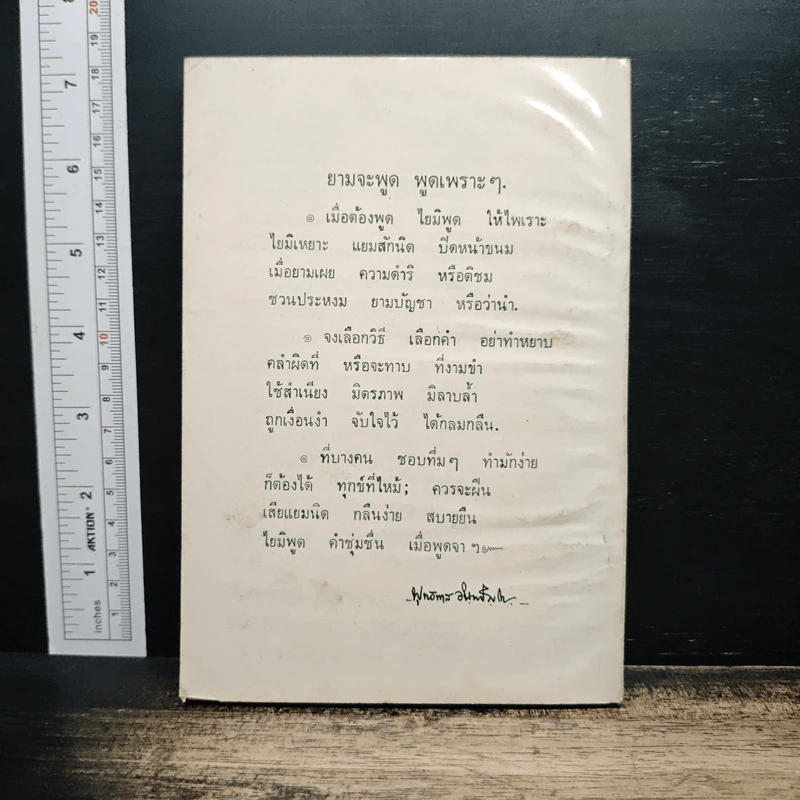 ยามจะพูด พูดเพราะๆ.
๏ เมื่อต้องพูด ไยมิพูด ให้ไพเราะ
ไยมิเหยาะ แยมสักนิด ปิดหน้าขนม
เมื่อยามเผย ความดำริ หรือติชม
ชวนประหงม ยามบัญชา หรือว่านำ.
๏ จงเลือกวิธี เลือกคำ อย่าทำหยาบ
คลำผิดที่ หรือจะทาบ ที่งามขำ
ใช้สำเนียง มิตรภาพ มิลาบล้ำ
ถูกเงื่อนงำ จับใจไว้ ได้กลมกลืน.
๏ ที่บางคน ชอบที่มๆ ทำมักง่าย
ก็ต้องได้ ทุกข์ที่ไหม้; ควรจะฝืน
เสียแยมนิด กลืนง่าย สบายยืน
ไยมิพูด คำชุ่มชื่น เมื่อพูดจา ฯ๛
พุทธทาส อินทปัญโญ
inches
1
2
3
4
5
6
7
8
AKTION®
1
2
3
4
5
6
7
8
9
10
11
12
13
14
15
16
17
18
19
20